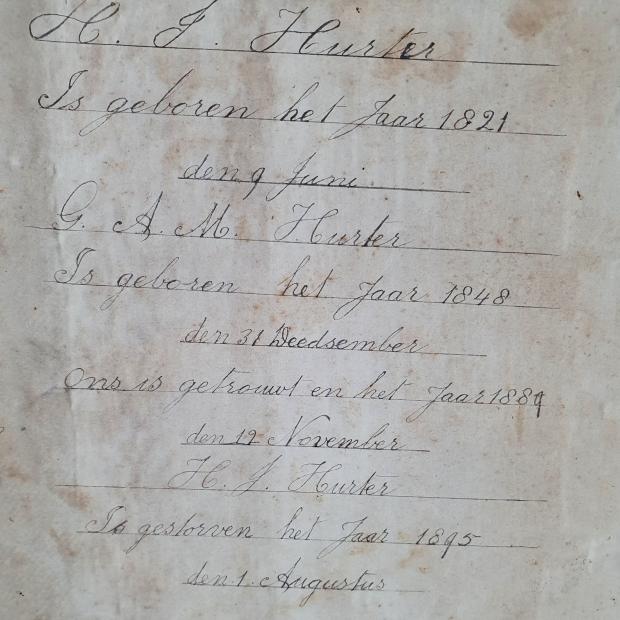 H. J. Hurter
Is geboren het Jaar 1821
den 9 Juni
G. A. M. Hurter
Is geboren het Jaar 1848
den 31 Deedsember
Ons is getrouwt en het Jaar 1889
den 12 November
H. J. Hurter
Is gestorven het Jaar 1895
den 1. Augustus